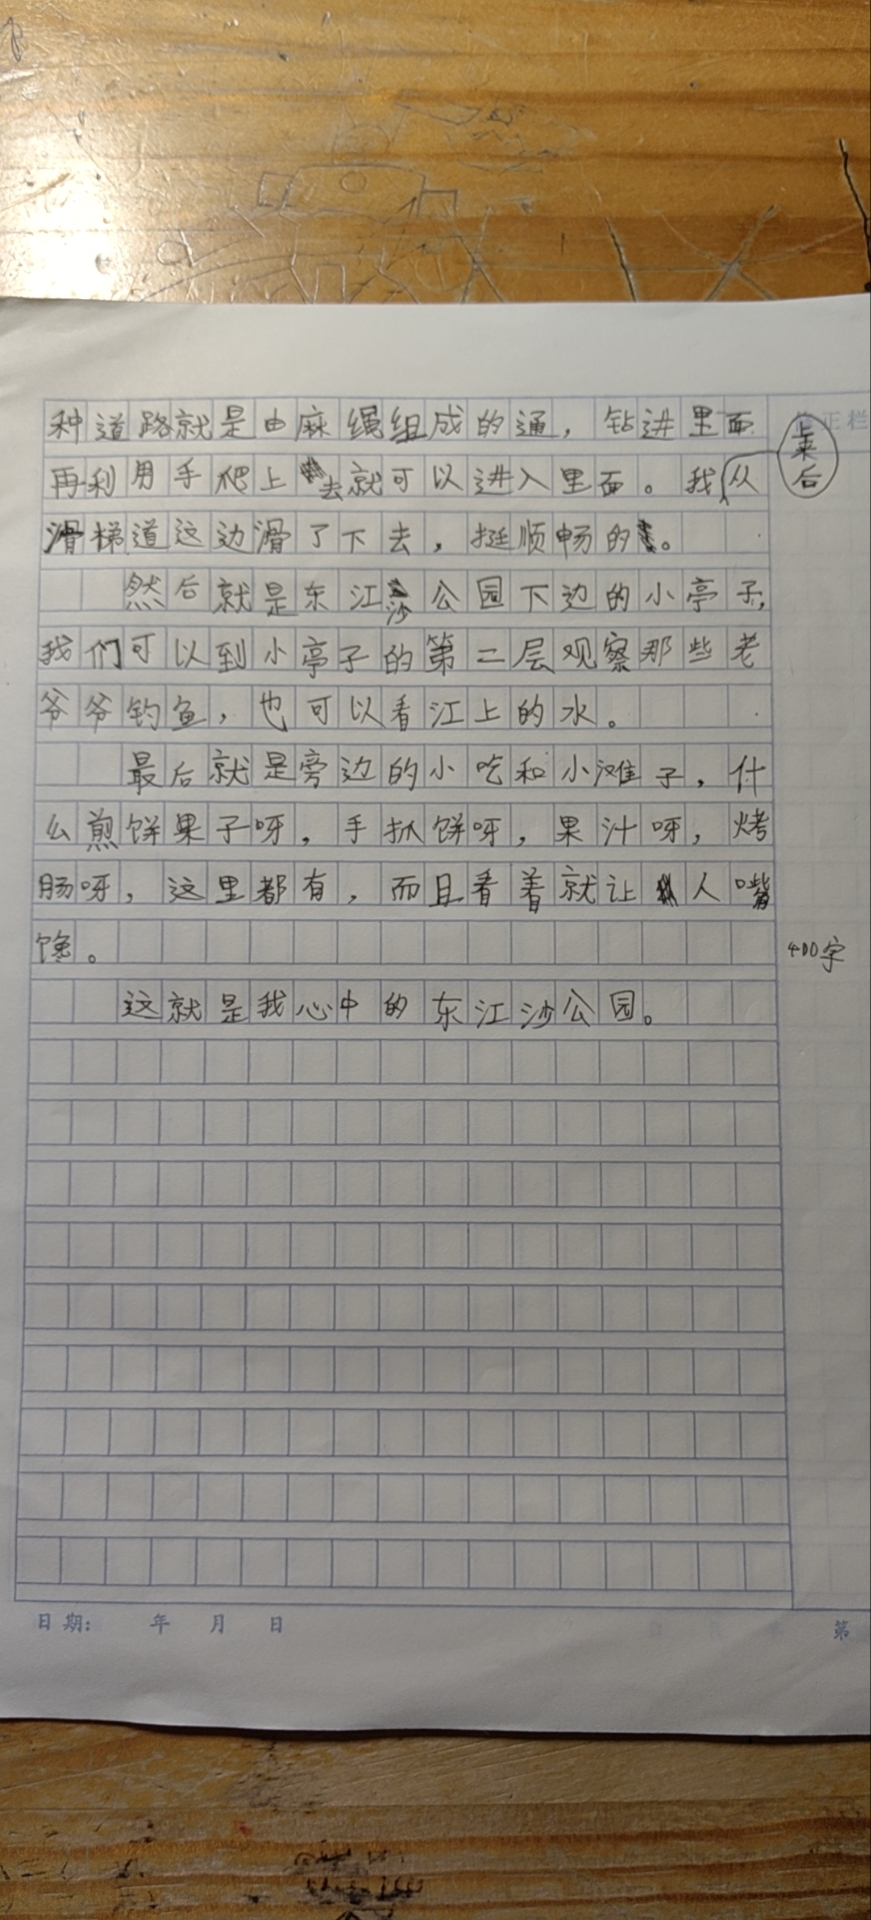 种道路就是由麻绳组成的通，钻进里面
再利用手爬上去就可以进入里面。我上来后从
滑梯道这边滑了下去，挺顺畅的。
然后就是东江沙公园下边的小亭子，
我们可以到小亭子的第二层观察那些老
爷爷钓鱼，也可以看江上的水。
最后就是旁边的小吃和小滩子，什
么煎饼果子呀，手抓饼呀，果汁呀，烤
肠呀，这里都有，而且看着就让人嘴
馋。
400字
这就是我心中的东江沙公园。
正栏
日期： 年 月 日
第